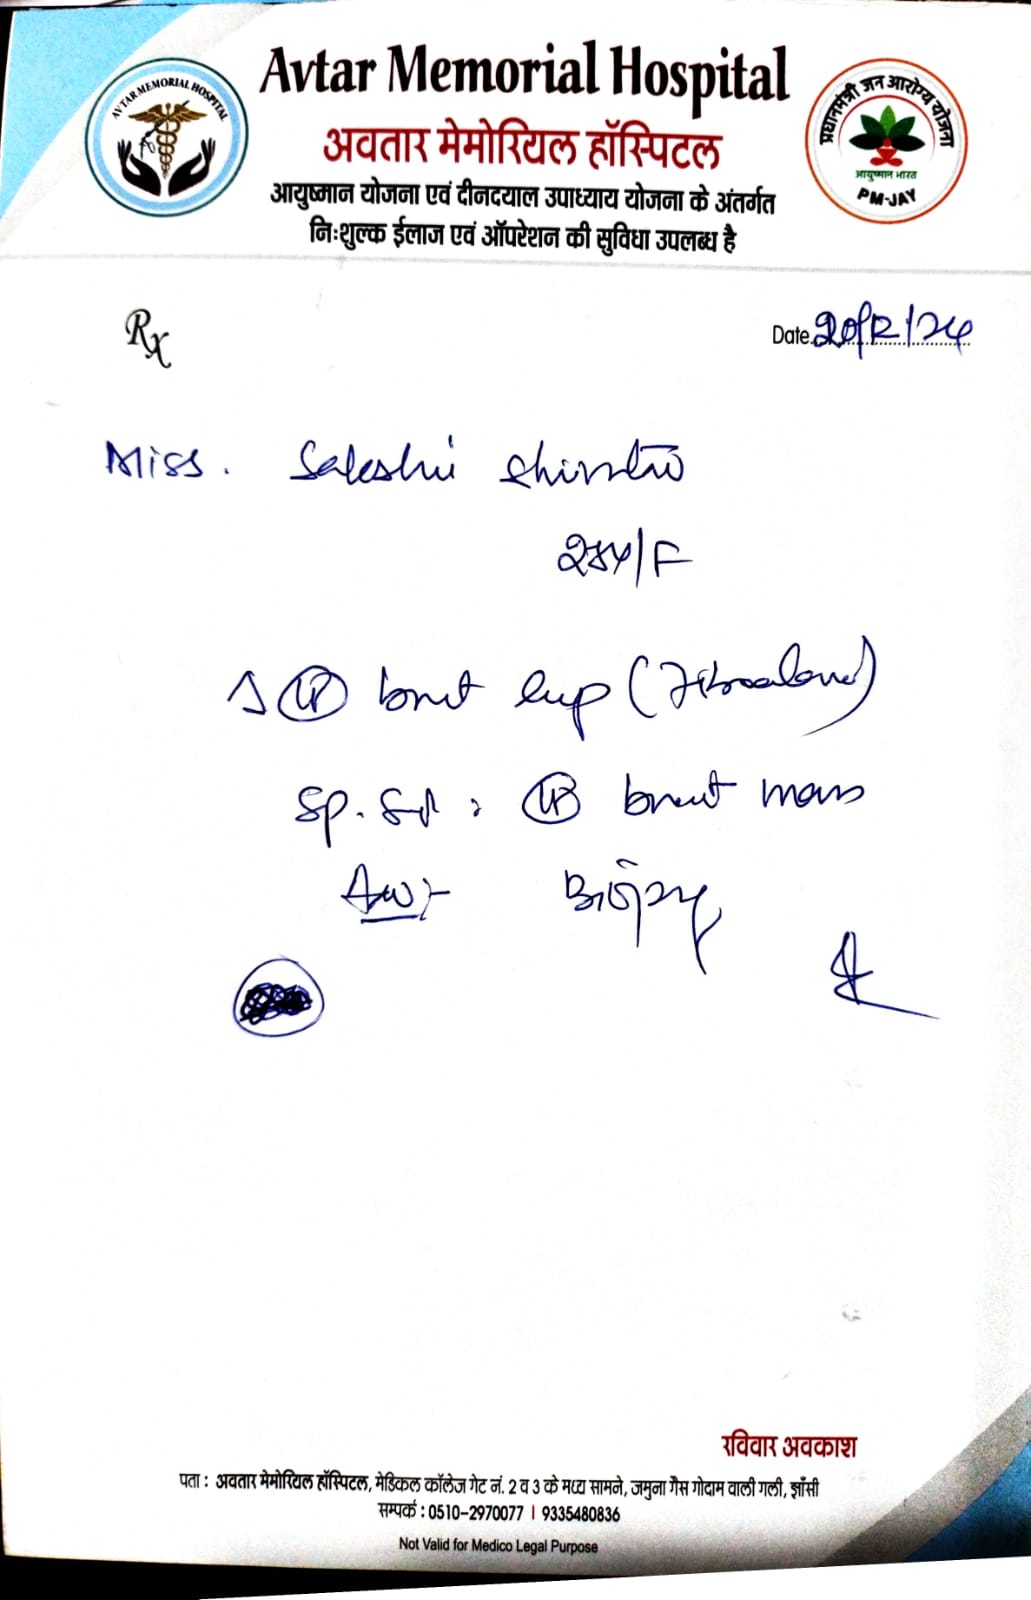 Avtar Memorial Hospital
अवतार मेमोरियल हॉस्पिटल
आयुष्मान योजना एवं दीनदयाल उपाध्याय योजना के अंतर्गत
निःशुल्क ईलाज एवं ऑपरेशन की सुविधा उपलब्ध है
AVTAR MEMORIAL HOSPITAL
प्रधानमंत्री जन आरोग्य योजना
आयुष्मान भारत
PM-JAY
Rx
Date 20/12/24
Miss. Sakshi
/F
breast lump
breast mass
Biopsy
रविवार अवकाश
पता : अवतार मेमोरियल हॉस्पिटल, मेडिकल कॉलेज गेट नं. 2 व 3 के मध्य सामने, जमुना गैस गोदाम वाली गली, झाँसी
सम्पर्क : 0510-2970077 I 9335480836
Not Valid for Medico Legal Purpose